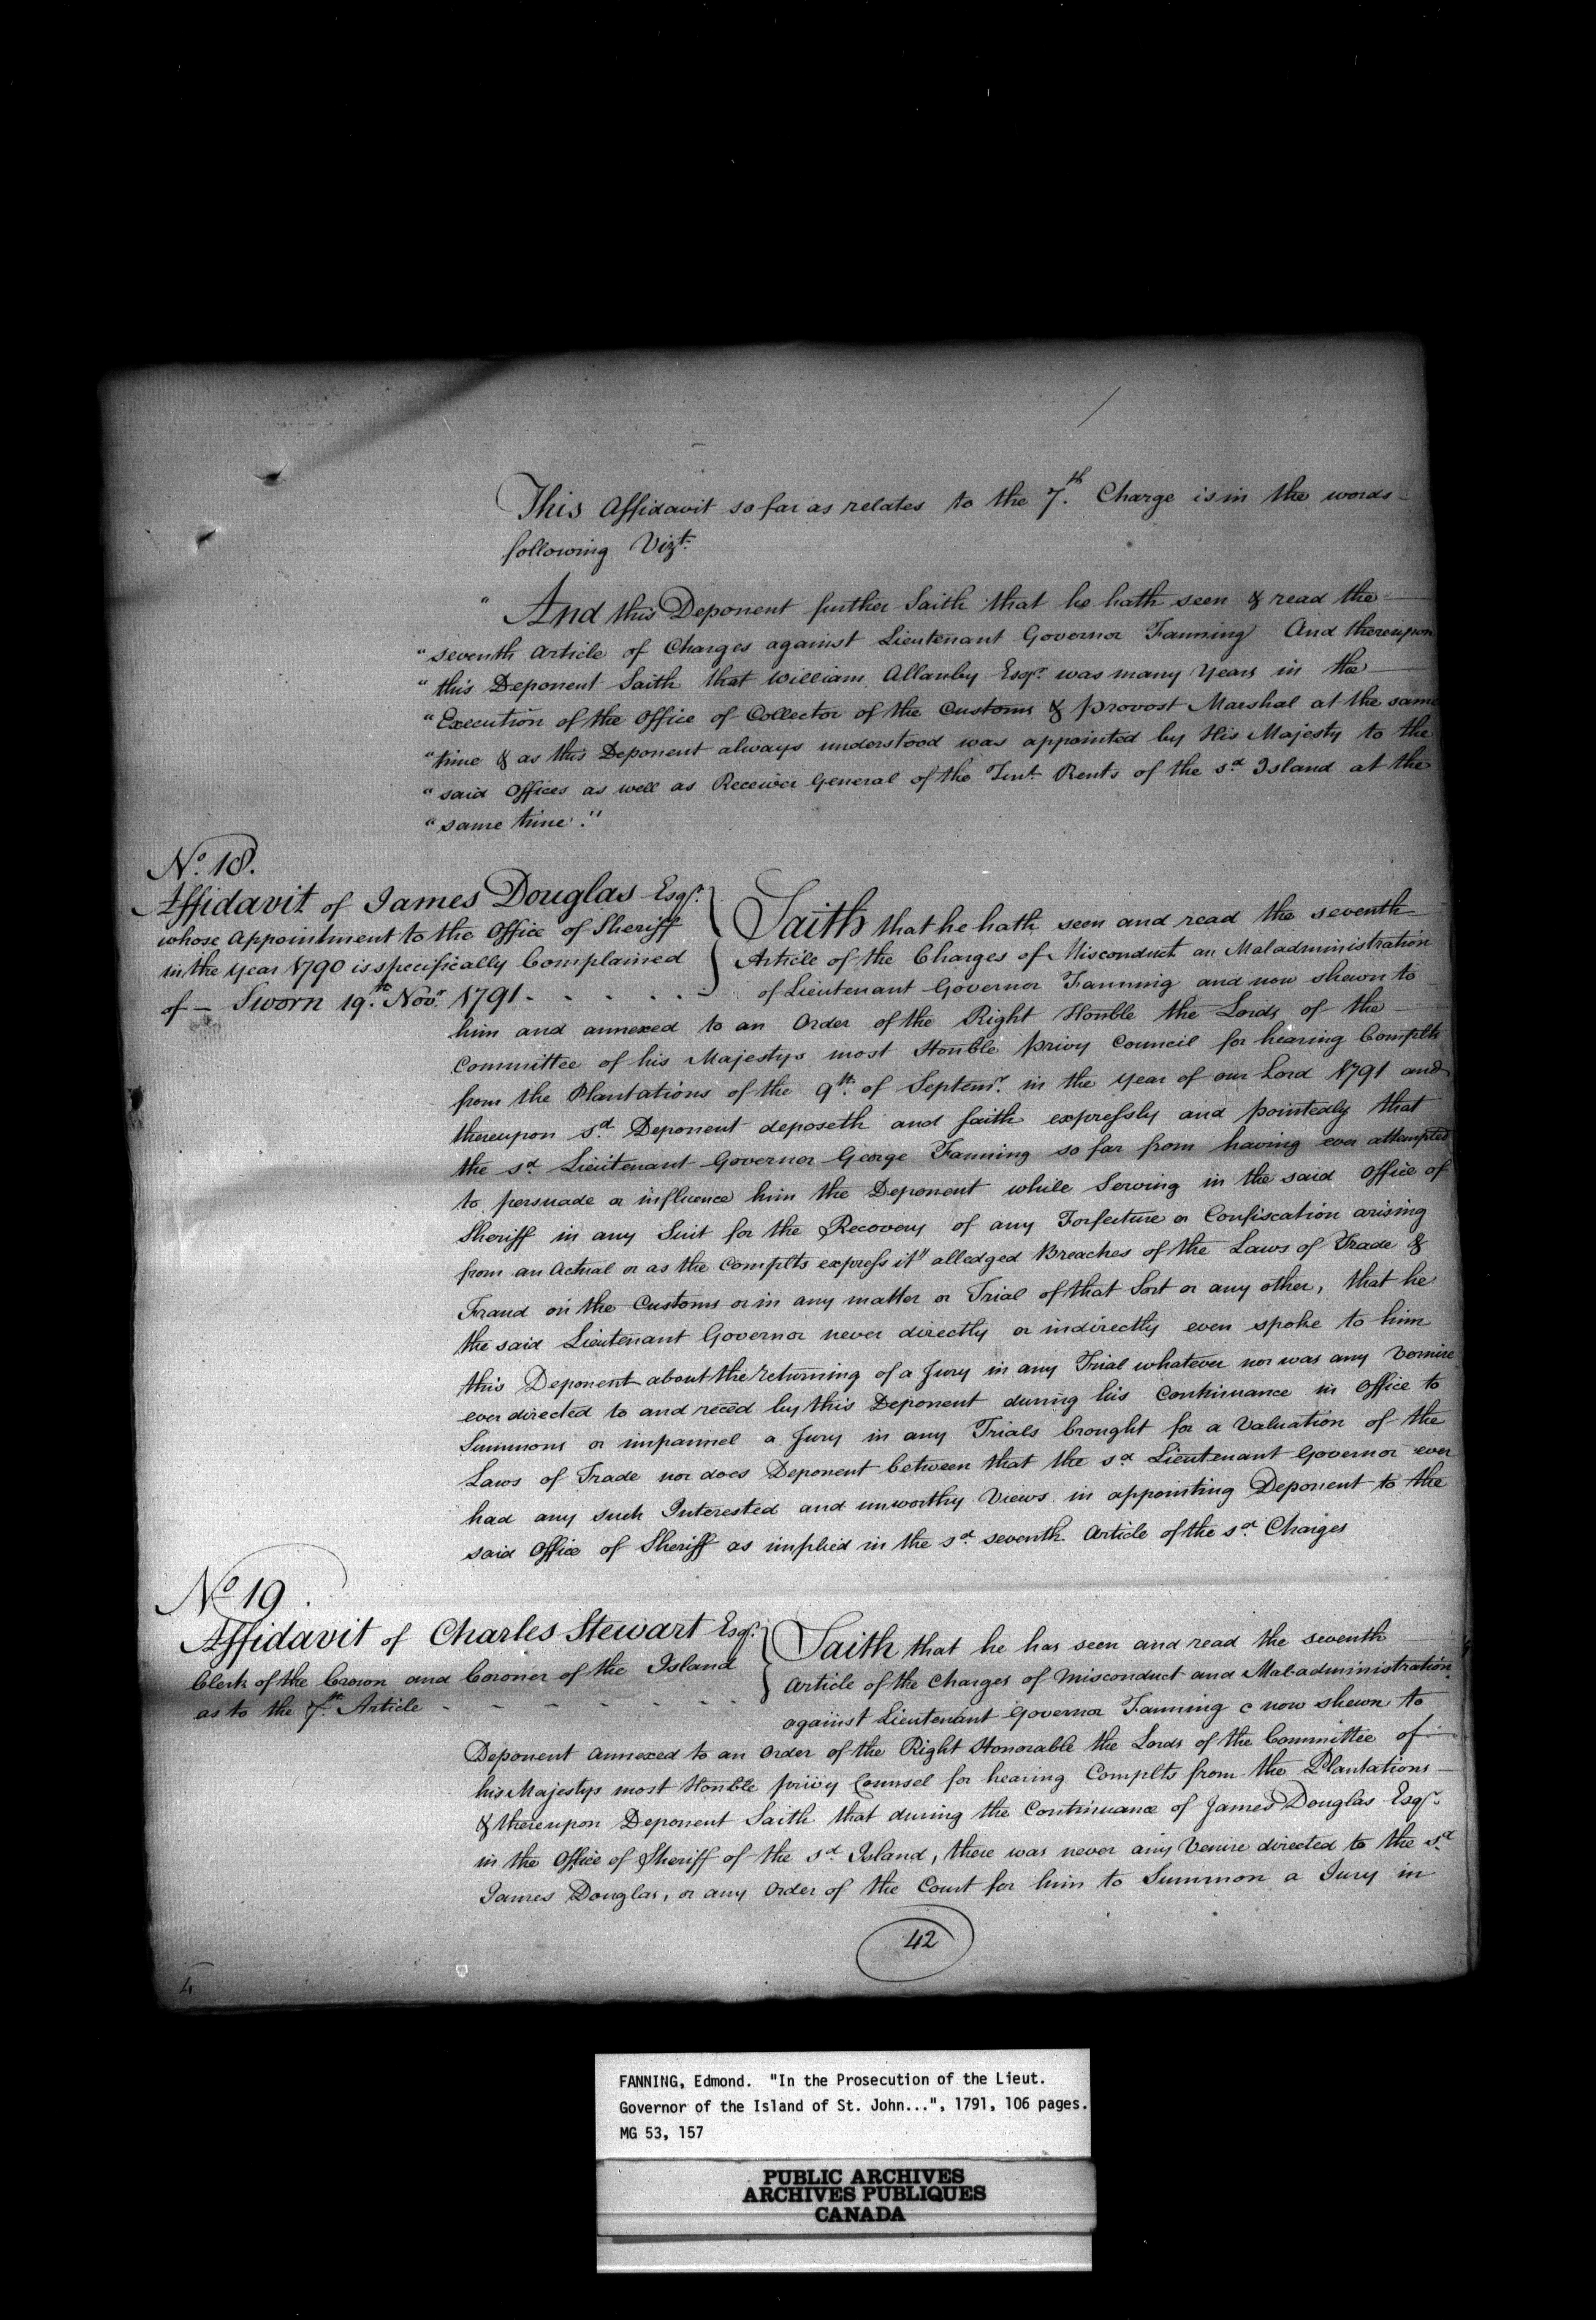 This Affidavit so far as relates to the 7.th Charge is in the words
following Vizt.
" And this Deponent further Saith that he hath seen & read the
" seventh Article of Charges against Lieutenant Governor Fanning And thereupon
" this Deponent Saith that William Allanby Esqr. was many Years in the
" Execution of the Office of Collector of the Customs & Provost Marshal at the same
" time & as this Deponent always understood was appointed by His Majesty to the
" said Offices as well as Receiver General of the Rents of the sd. Island at the
" same time."
No. 18.
Affidavit of James Douglas Esqr.
whose Appointment to the Office of Sheriff
in the Year 1790 is specifically Complained
of - Sworn 19.th Novr. 1791 - - - - - -
Saith that he hath seen and read the seventh
Article of the Charges of Misconduct an Maladministration
of Lieutenant Governor Fanning and now shewn to
him and annexed to an Order of the Right Honble the Lords of the
Committee of his Majestys most Honble privy Council for hearing Complts
from the Plantations of the 9th. of Septemr. in the Year of our Lord 1791 and
thereupon sd. Deponent deposeth and saith expressly and pointedly that
the sd. Lieutenant Governor George Fanning so far from having ever attempted
to persuade or influence him the Deponent while Serving in the said Office of
Sheriff in any Suit for the Recovery of any Forfecture or Confiscation arising
from an Actual or as the Complts express it" alledged Breaches of the Laws of Trade &
Fraud on the Customs or in any matter or Trial of that Sort or any other, that he
the said Lieutenant Governor never directly or indirectly even spoke to him
this Deponent about the returning of a Jury in any Trial whatever nor was any Vernire
ever directed to and reced by this Deponent during his Continuance in Office to
Summons or impannel a Jury in any Trials brought for a Valuation of the
Laws of Trade nor does Deponent between that the sd. Lieutenant Governor ever
had any such Interested and unworthy Views in appointing Deponent to the
said Office of Sheriff as implied in the sd. seventh Article of the sd. Charges
No 19.
Affidavit of Charles Stewart Esqr.
Clerk of the Crown and Coroner of the Island
as to the 7.th Article - - - - - - -
Saith that he has seen and read the seventh
Article of the Charges of Misconduct and Mal-administration
against Lieutenant Governor Fanning c now shewn to
Deponent annexed to an Order of the Right Honorable the Lords of the Committee of
his Majestys most Honble privy Counsel for hearing Complts from the Plantations
& thereupon Deponent Saith that during the Continuance of James Douglas Esqr.
in the Office of Sheriff of the sd. Island, there was never any Venire directed to the sd.
James Douglas, or any Order of the Court for him to Summon a Jury in
42
4
FANNING, Edmond. "In the Prosecution of the Lieut.
Governor of the Island of St. John...", 1791, 106 pages.
MG 53, 157
PUBLIC ARCHIVES
ARCHIVES PUBLIQUES
CANADA